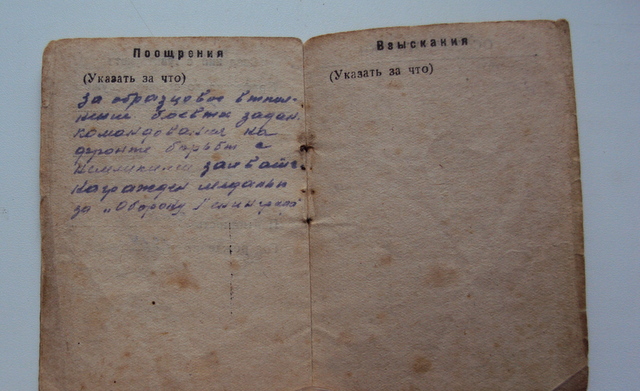 Поощрения
(Указать за что)
За образцовое выпол-
нение боевых задан.
командования на
фронте борьбы с
немецкими захват.
награжден медалью
за „Оборону Ленинграда"
Взыскания
(Указать за что)